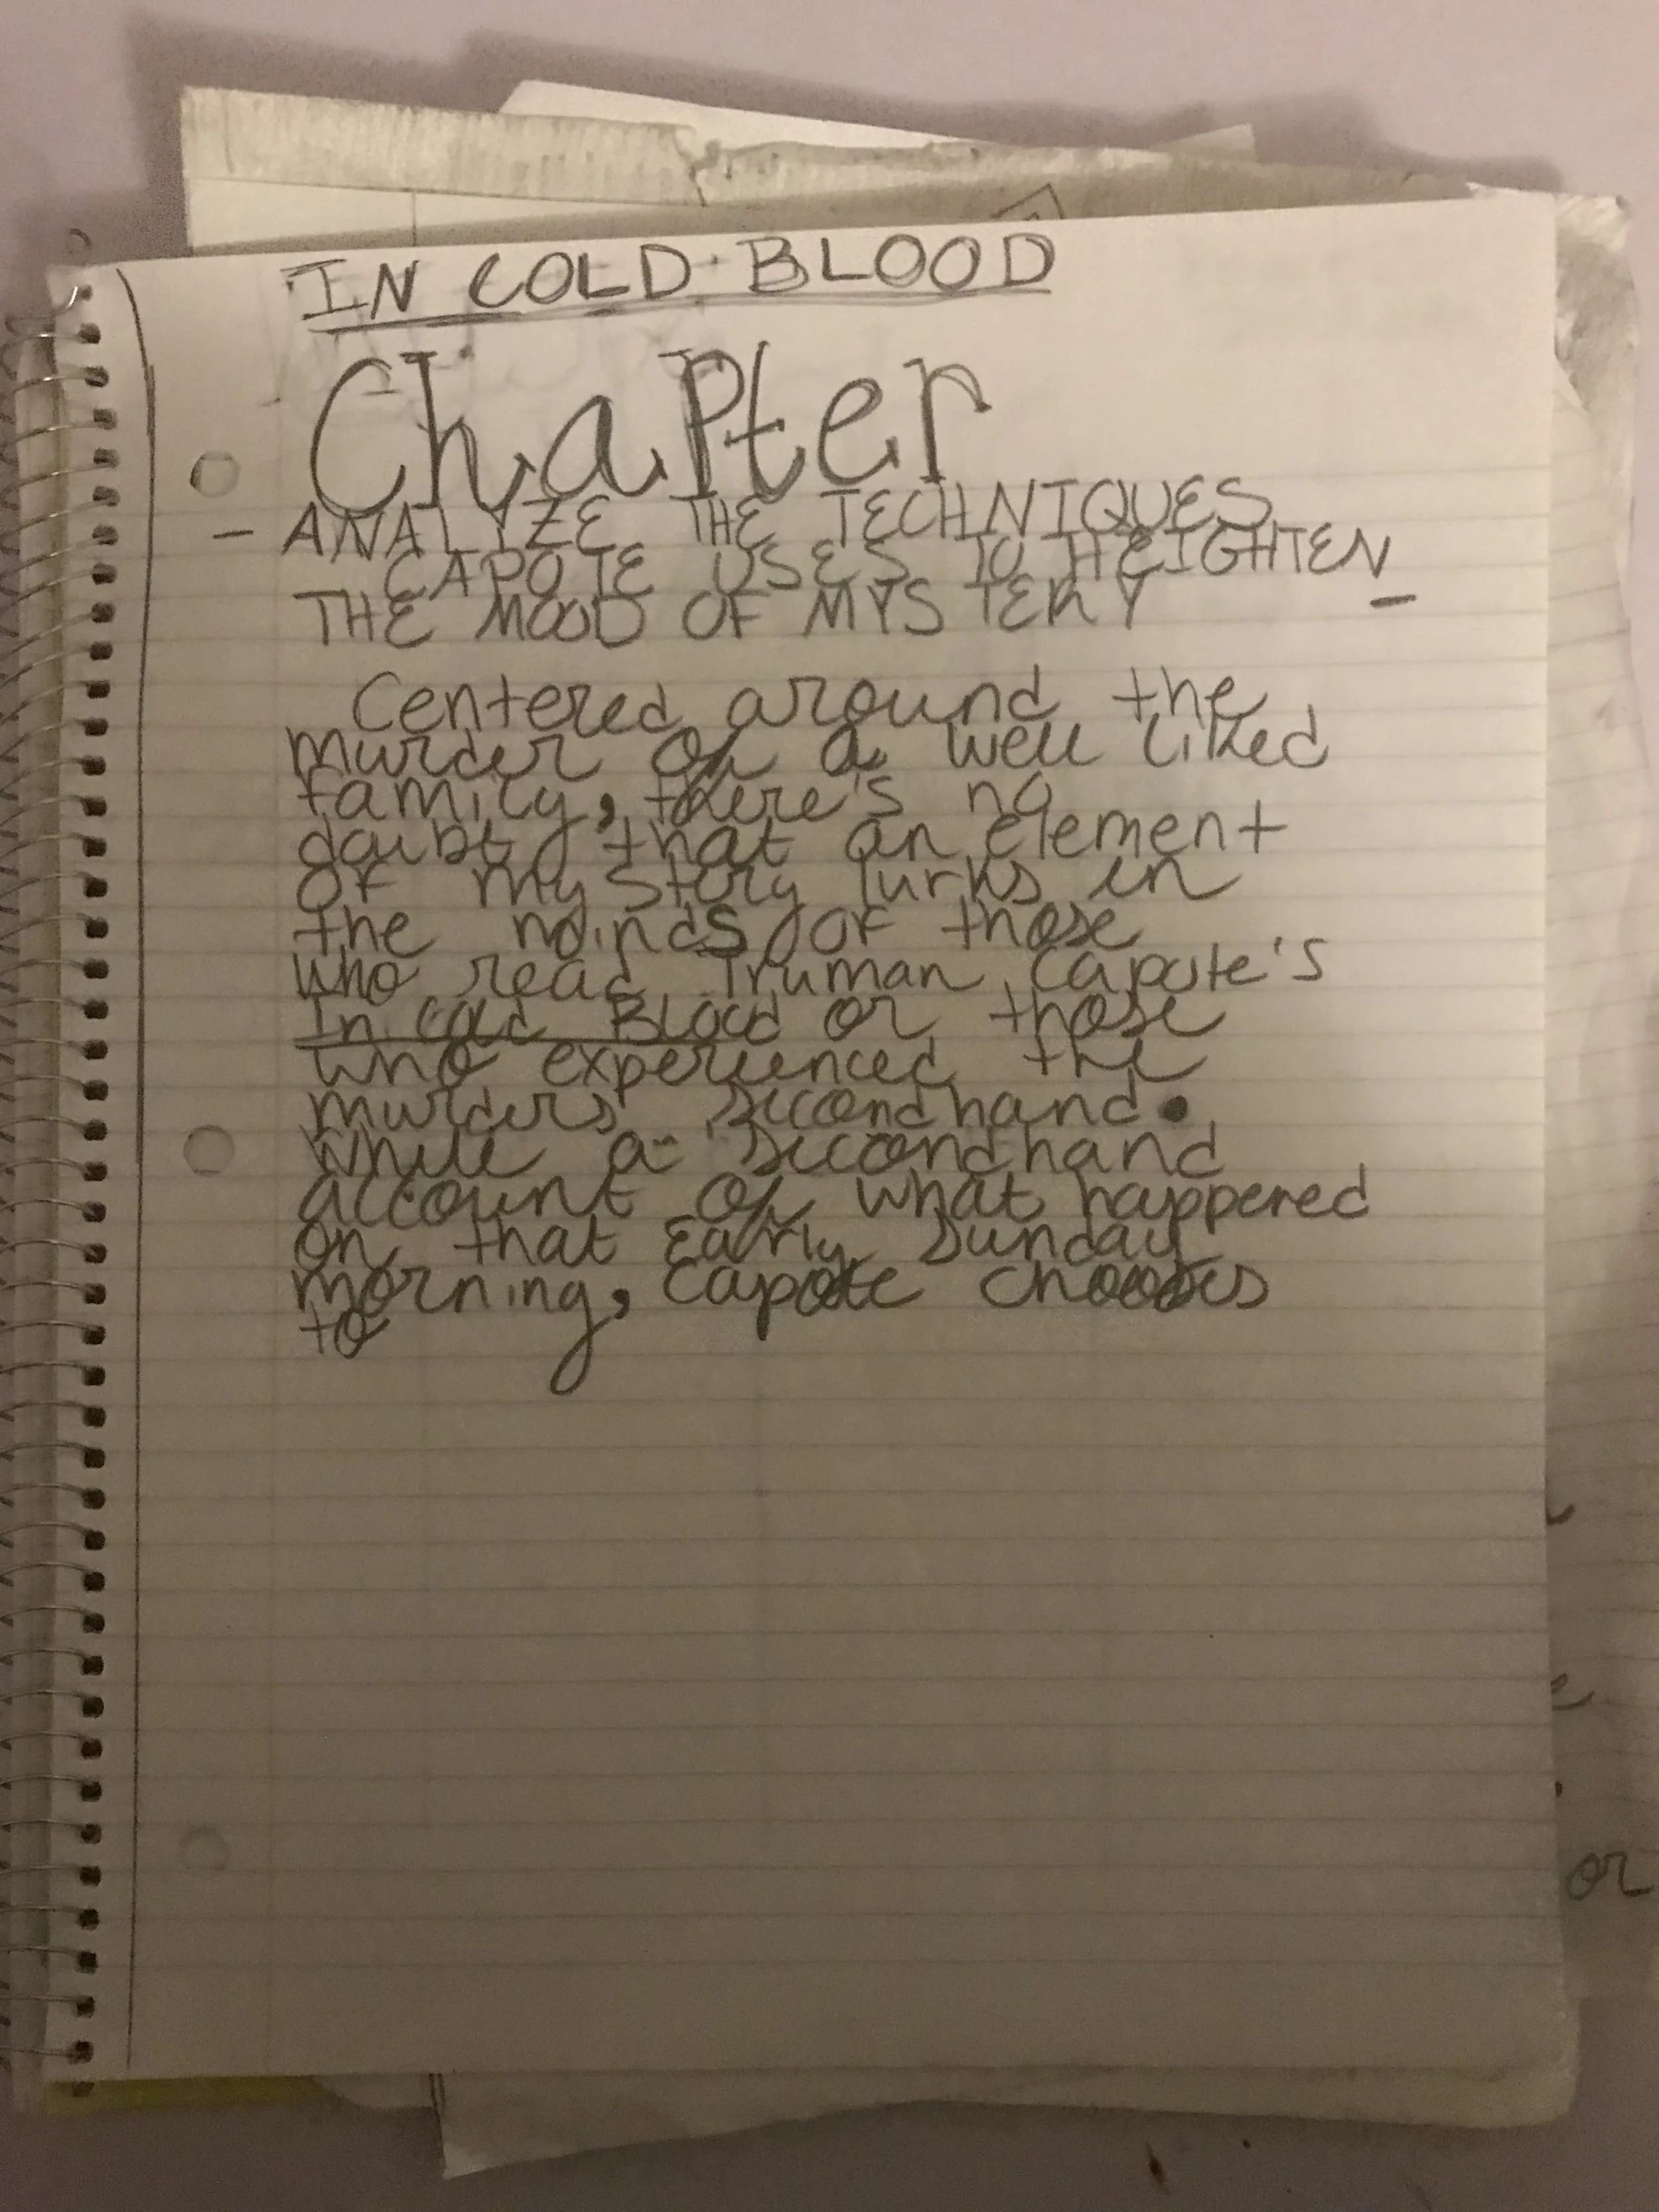 IN COLD BLOOD
Chapter
- ANALYZE THE TECHNIQUES
CAPOTE USES TO HEIGHTEN
THE MOOD OF MYSTERY -
Centered around the
murder of a well liked
family, there's no
doubt that an element
of mystory lurks in
the minds of those
who read Truman Capote's
In Cold Blood or those
who experienced the
murders secondhand.
While a secondhand
account of what happened
on that Early Sunday
morning, Capote chooses
to
or